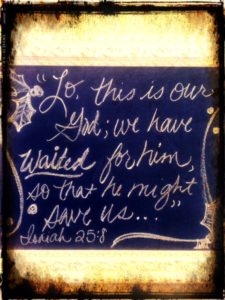 "Lo, this is our
God; we have
waited for him,
so that he might
save us..."
Isaiah 25:8